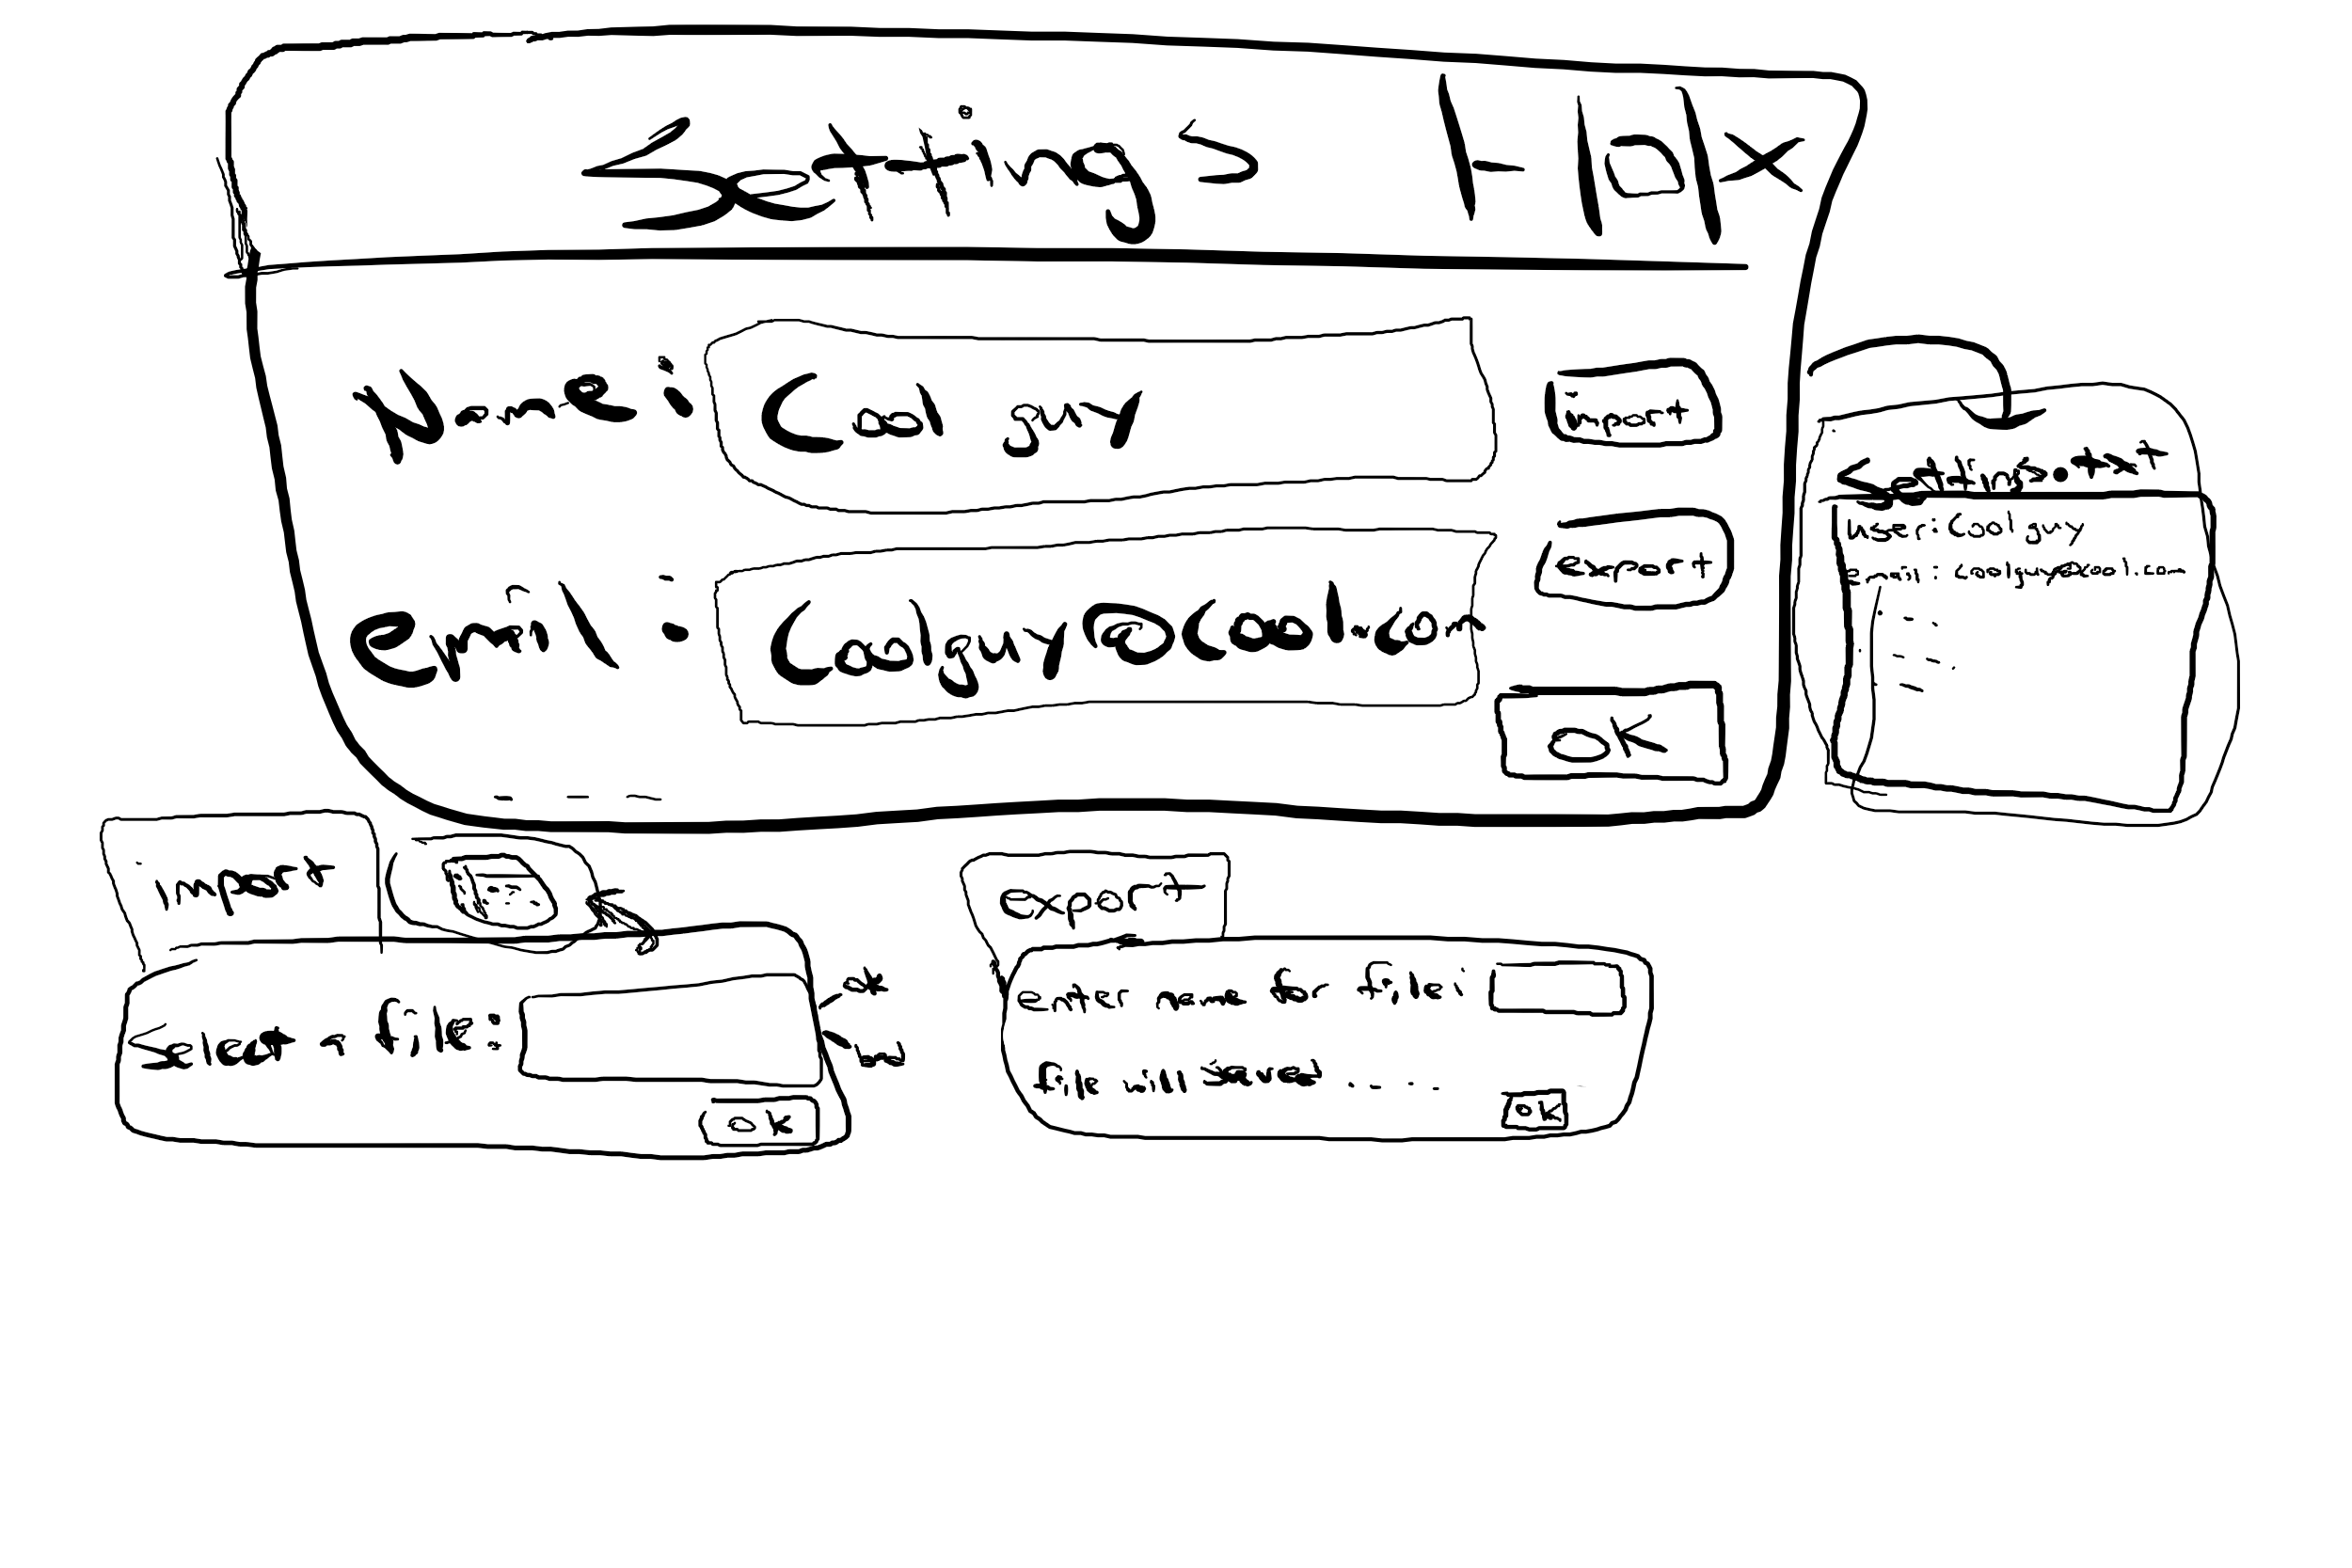 Settings | - | □ | x
Name: Cool guy
import
email: Coolguy@cool.com
export
OK
settings.txt
User: Cool guy
email: coolguy@cool.com
import
select a file:
ok
OK
export
enter name for file:
file will saved ....
OK